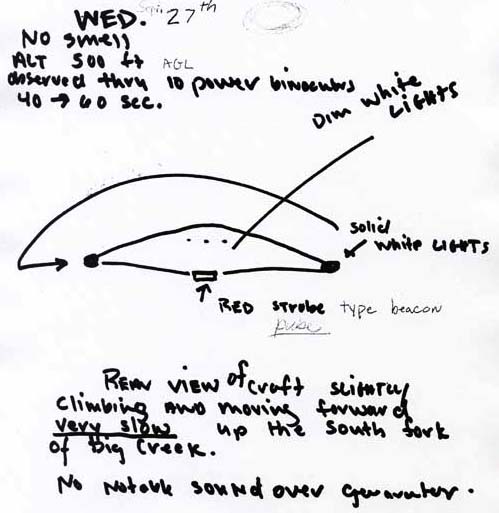 WED. Sept. 27th
NO smell
ALT 500 ft AGL
observed thru 10 power binoculars
40 → 60 sec.
Dim white
LIGHTS
solid
white LIGHTS
RED strobe type beacon
pulse
REAR VIEW of craft slightly
climbing AND moving forward
very slow up the south fork
of Big Creek.
No Notable sound over generator.